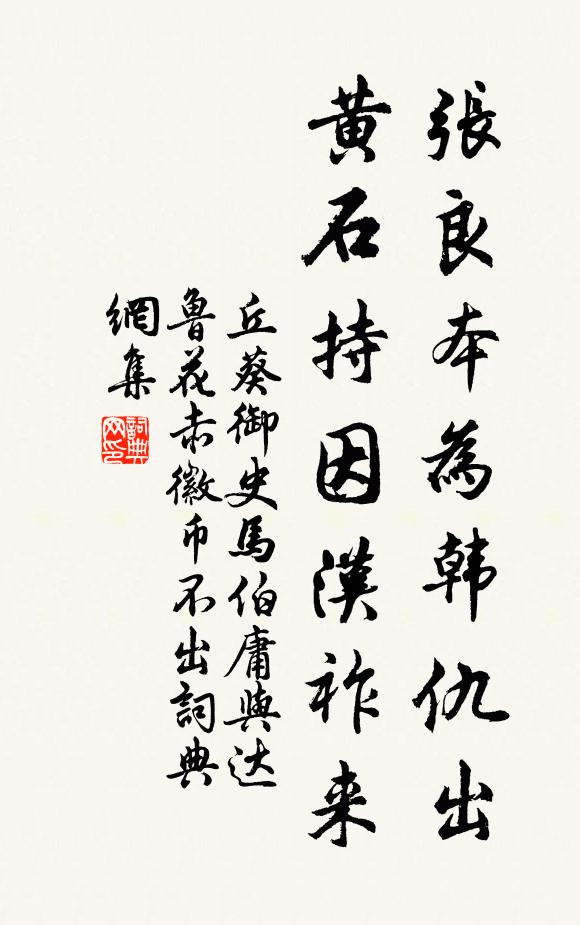 張良本為韩仇出
黄石持因漢祚来
丘葵御史馬伯庸與达
魯花赤徽币不出詞典
網集
詞典
网印